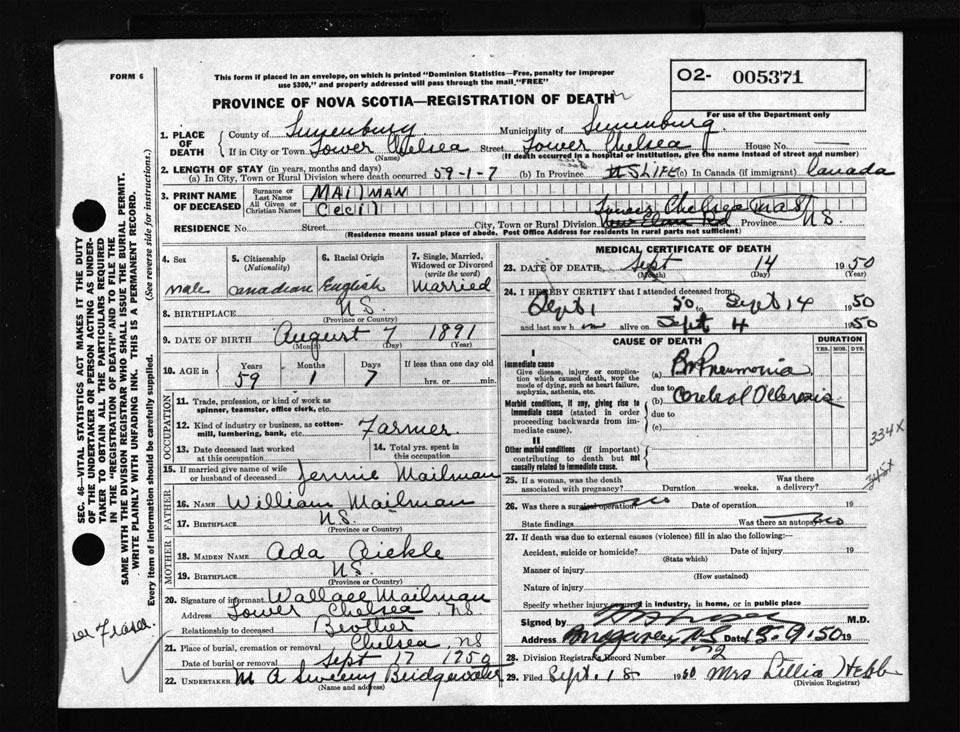 FORM 6
This form if placed in an envelope, on which is printed "Dominion Statistics—Free, penalty for improper
use $300," and properly addressed will pass through the mail "FREE"
O2- 005371
PROVINCE OF NOVA SCOTIA—REGISTRATION OF DEATH
For use of the Department only
1. PLACE OF DEATH { County of Lunenburg Municipality of Lunenburg
If in City or Town Lower Chelsea Street Lower Chelsea House No. —
(Name) (If death occurred in a hospital or institution, give the name instead of street and number)
2. LENGTH OF STAY (in years, months and days)
(a) In City, Town or Rural Division where death occurred 59-1-7 (b) In Province LIFE (c) In Canada (if immigrant) Canada
3. PRINT NAME OF DECEASED { Surname or Last Name MAILMAN
All Given or Christian Names Cecil
Lower Chelsea
RESIDENCE No. Street City, Town or Rural Division Province N.S.
(Residence means usual place of abode. Post Office Address for residents in rural parts not sufficient)
4. Sex Male
5. Citizenship (Nationality) Canadian
6. Racial Origin English
7. Single, Married, Widowed or Divorced (write the word) Married
8. BIRTHPLACE N.S.
(Province or Country)
9. DATE OF BIRTH August 7 1891
(Month) (Day) (Year)
10. AGE in Years Months Days If less than one day old
59 1 7 hrs. or min.
OCCUPATION
11. Trade, profession, or kind of work as spinner, teamster, office clerk, etc.
12. Kind of industry or business, as cotton-mill, lumbering, bank, etc. Farmer
13. Date deceased last worked at this occupation
14. Total yrs. spent in this occupation
15. If married give name of wife or husband of deceased Jennie Mailman
FATHER
16. NAME William Mailman
17. BIRTHPLACE N.S.
(Province or Country)
MOTHER
18. MAIDEN NAME Ada
19. BIRTHPLACE N.S.
(Province or Country)
20. Signature of informant Wallace Mailman
Address Lower Chelsea NS
Relationship to deceased Brother
21. Place of burial, cremation or removal Chelsea, NS
Date of burial or removal Sept 17 1950
22. UNDERTAKER M A Sweeny Bridgewater
(Name and address)
MEDICAL CERTIFICATE OF DEATH
23. DATE OF DEATH Sept 14 1950
(Month) (Day) (Year)
24. I HEREBY CERTIFY that I attended deceased from:
Sept 1 50 to Sept 14 1950
and last saw him alive on Sept 4 1950
CAUSE OF DEATH
DURATION
YRS. MOS. DYS.
I
Immediate cause
Give disease, injury or complication which caused death, NOT the mode of dying, such as heart failure, asphyxia, asthenia, etc.
(a) Br Pneumonia
due to
Morbid conditions, if any, giving rise to immediate cause (stated in order proceeding backwards from immediate cause).
(b) Cerebral Sclerosis
due to
(c)
334X
II
Other morbid conditions (if important) contributing to death but not causally related to immediate cause.
25. If a woman, was the death associated with pregnancy? Duration weeks. Was there a delivery?
26. Was there a surgical operation? no Date of operation 19
State findings Was there an autopsy? no
27. If death was due to external causes (violence) fill in also the following:—
Accident, suicide or homicide? Date of injury 19
(State which)
Manner of injury
(How sustained)
Nature of injury
Specify whether injury occurred in industry, in home, or in public place
Signed by M.D.
Address Bridgewater, N.S. Date 18.9.50 19
28. Division Registrar's Record Number 72
29. Filed Sept. 18 1950 Mrs Lillia Hebb
(Division Registrar)
SEC. 46—VITAL STATISTICS ACT MAKES IT THE DUTY
OF THE UNDERTAKER OR PERSON ACTING AS UNDER-
TAKER TO OBTAIN ALL THE PARTICULARS REQUIRED
IN THE "REGISTRATION OF DEATH" AND TO FILE THE
SAME WITH THE DIVISION REGISTRAR WHO SHALL ISSUE THE BURIAL PERMIT.
WRITE PLAINLY WITH UNFADING INK. THIS IS A PERMANENT RECORD.
Every item of information should be carefully supplied. (See reverse side for instructions.)